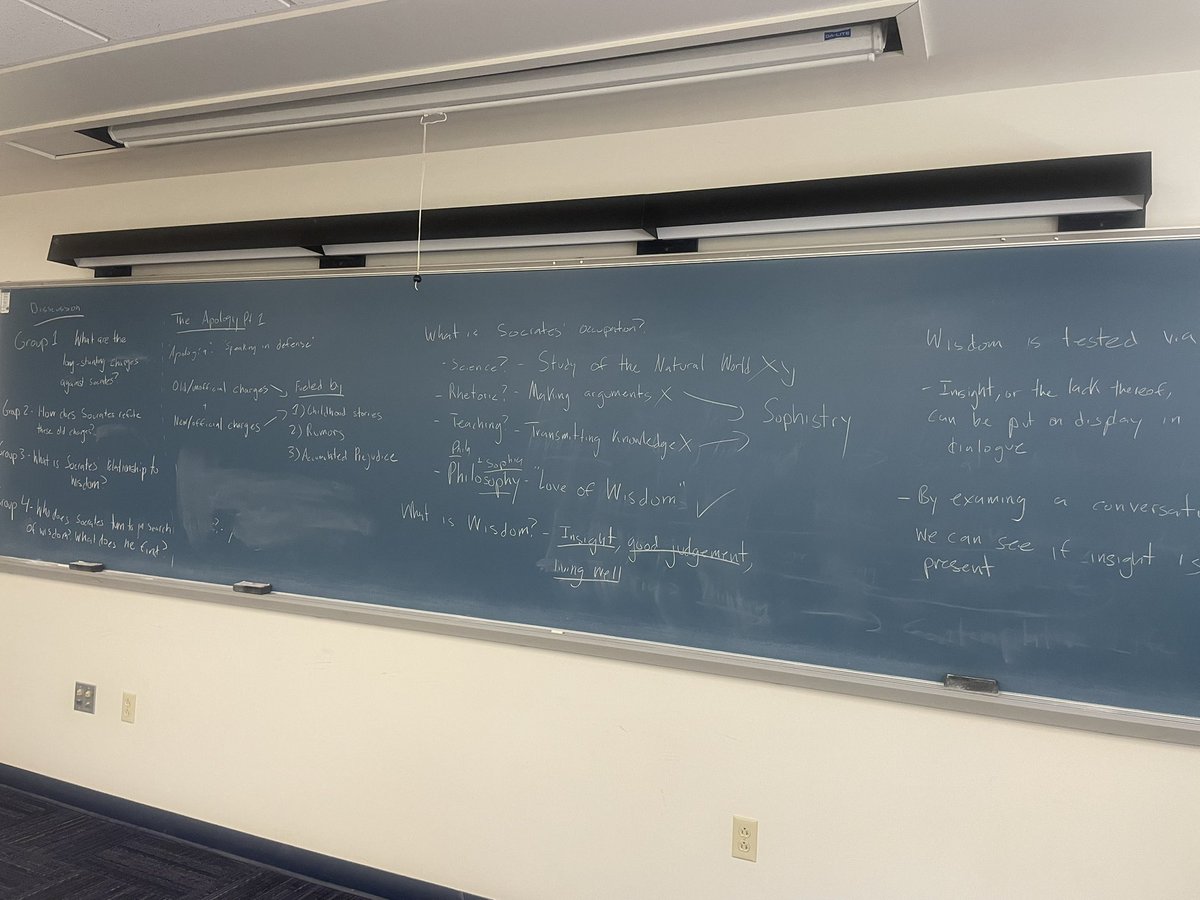 DA-LITE
Discussion
Group 1 What are the
long-standing charges
against Socrates?
Group 2 - How does Socrates refute
these old charges?
Group 3 - What is Socrates' relationship to
Wisdom?
Group 4 - Who does Socrates turn to in search
of wisdom? What does he find?
The Apology Pt 1
Apologia: "Speaking in defense"
Old/unofficial charges
+
New/official charges
Fueled by
1) Childhood stories
2) Rumors
3) Accumulated Prejudice
? . ,
What is Socrates' occupation?
- Science? - Study of the Natural World X
- Rhetoric? - Making arguments X
- Teaching? - Transmitting Knowledge X
Sophistry
Phila + Sophia
- Philosophy - "Love of Wisdom" ✓
What is Wisdom? - Insight, good judgement,
living well
Wisdom is tested via
- Insight, or the lack thereof,
can be put on display in
dialogue
- By examing a conversat
We can see if insight is
present